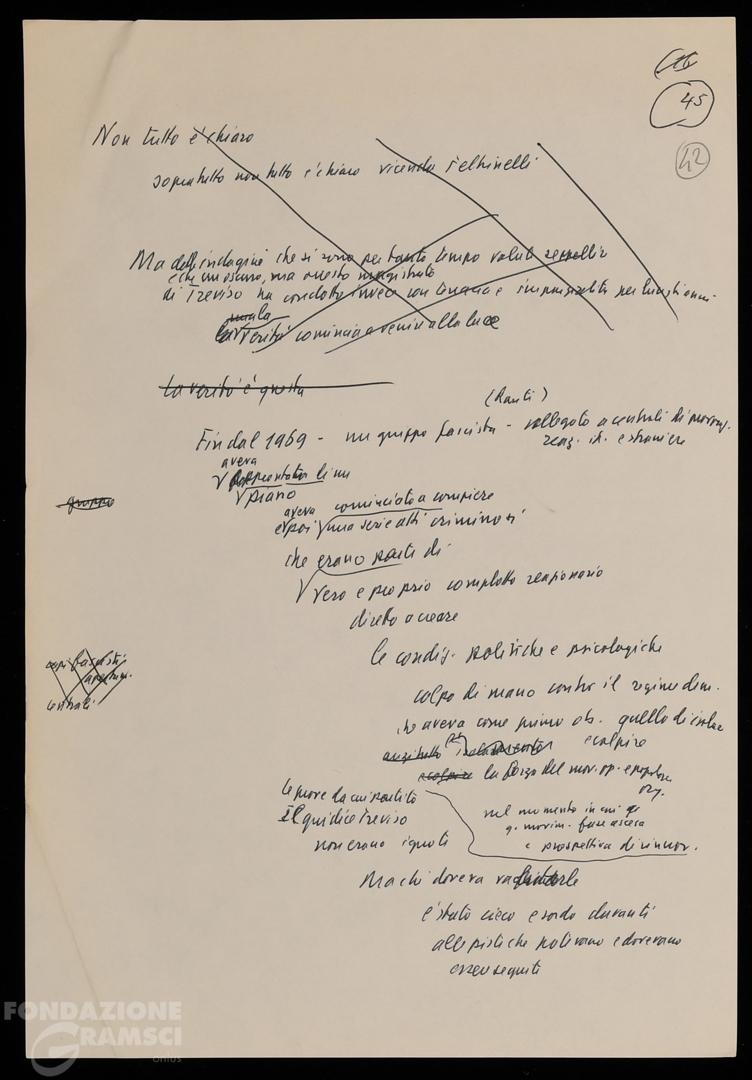 16
45
42
Non tutto è chiaro
sopratutto non tutto è chiaro vicenda Feltrinelli
Ma dalle indagini che si sono per tanto tempo volute seppellire
e che un oscuro, ma onesto magistrato
di Treviso ha condotto invece con tenacia e
la verità comincia a venire alla luce
La verità è questa
(Rauti)
Fin dal 1969 - un gruppo fascista - collegato a centrali di provoc.
reaz. it. e straniere
aveva
piano
gruppo
aveva cominciato a compiere
e poi una serie atti criminosi
che erano parti di
vero e proprio complotto reazionario
diretto a creare
le condiz. politiche e psicologiche
capi fascisti
centrali
colpo di mano contro il regime dem.
che aveva come primo ob. quello di isolare
anzitutto e colpire
e colpire la forza del mov. op. e popolare
org.
le prove da cui partito
il giudice Treviso
non erano ignoti
nel momento in cui
q. movim. fase ascesa
e prospettiva di rinnov.
Ma chi doveva
è stato cieco e sordo davanti
alle piste che potevano e dovevano
esser seguiti
FONDAZIONE
GRAMSCI
onlus